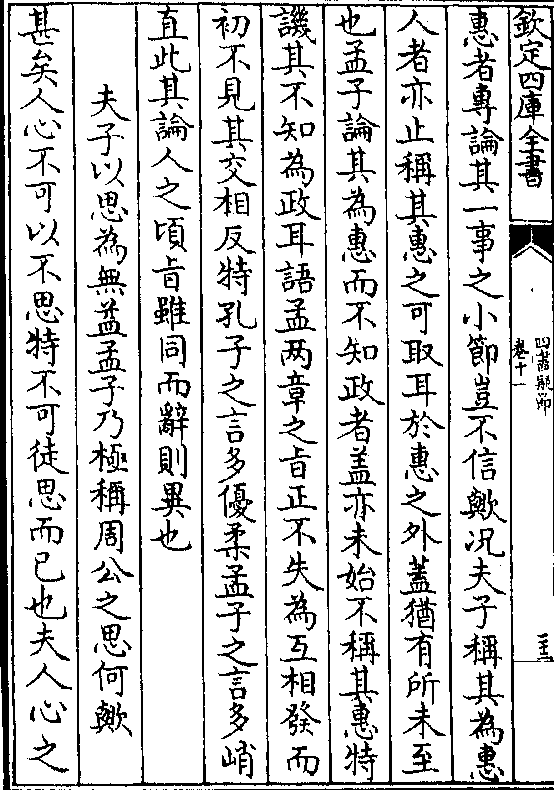 欽定四庫全書
四書疑節
卷十一
惠者專論其一事之小節豈不信歟况夫子稱其為惠
人者亦止稱其惠之可取耳於惠之外蓋猶有所未至
也孟子論其為惠而不知政者盖亦未始不稱其惠特
譏其不知為政耳語孟两章之旨正不失為互相發而
初不見其交相反特孔子之言多優柔孟子之言多峭
直此其論人之頃旨雖同而辭則異也
夫子以思為無益孟子乃極稱周公之思何歟
甚矣人心不可以不思特不可徒思而已也夫人心之